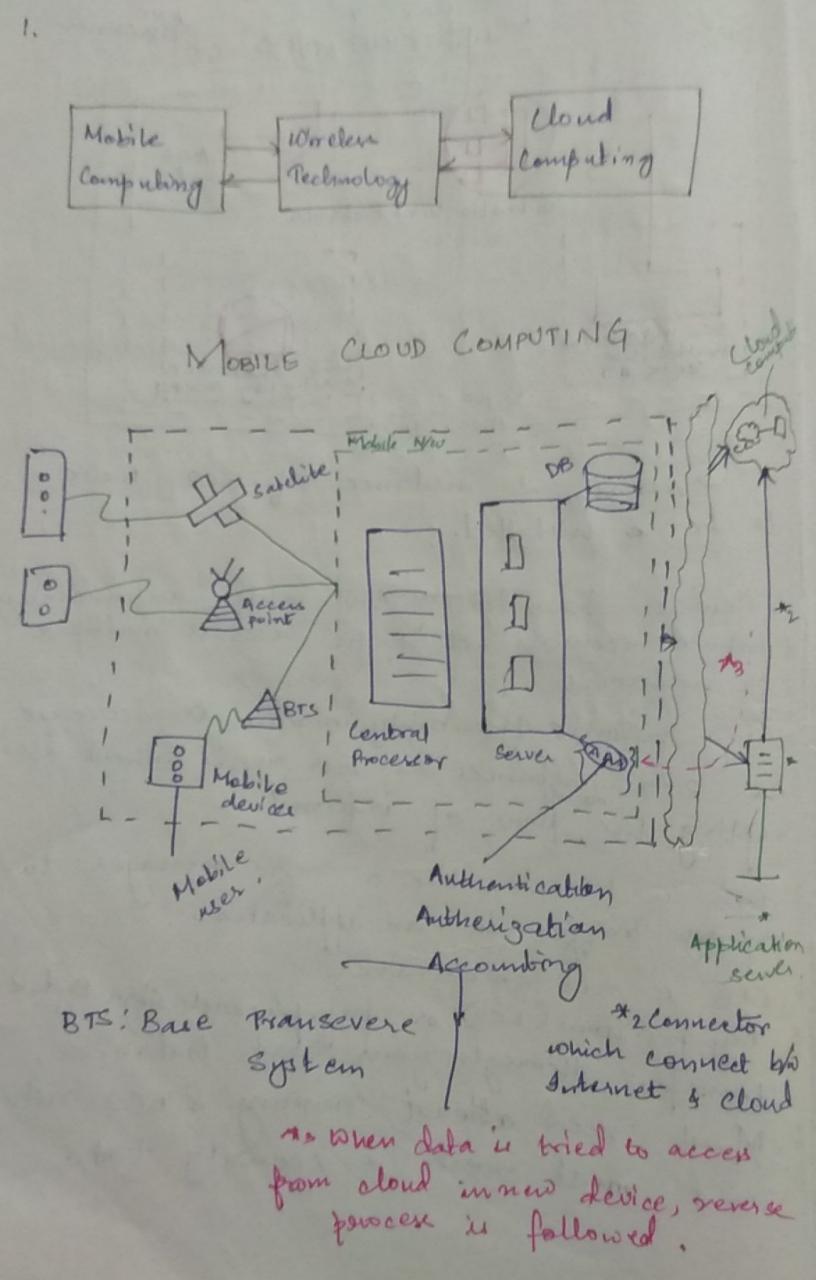 1.
Mobile
Computing
Wireless
Technology
Cloud
Computing
MOBILE CLOUD COMPUTING
Cloud
Mobile N/w
DB
Satelite
Access
point
BTS
Mobile
devices
Mobile
user.
Central
Processor
Server
*2
*3
*
Authentication
Autherization
Accounting
*
Application
server
BTS: Base Transevere
System
*2 Connector
which connect b/w
Internet & cloud
*3 When data is tried to access
from cloud in new device, reverse
process is followed.